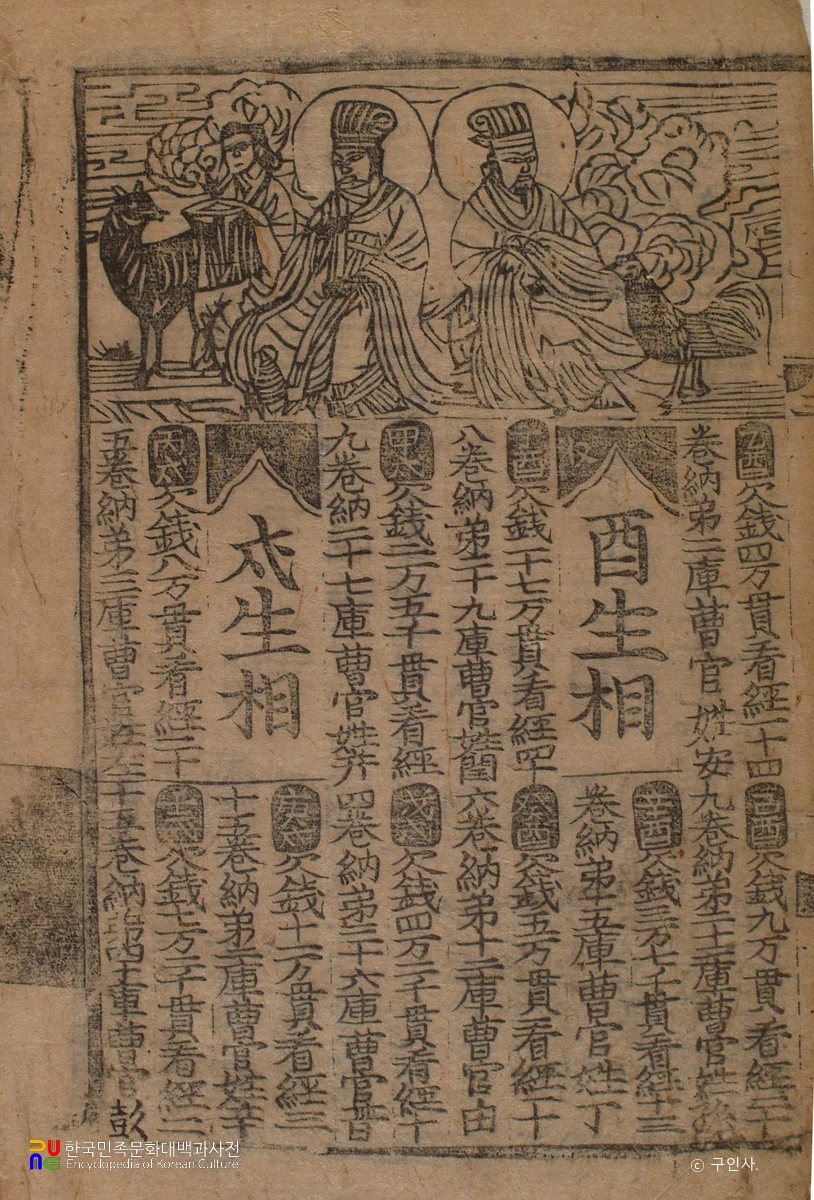 乙酉欠錢四万貫看經一十四
卷納弟二庫曹官姓安
己酉欠錢九万貫看經二十
九卷納弟二十二庫曹官姓孫
酉生相
辛酉欠錢三万七千貫看經十三
卷納弟十五庫曹官姓丁
丁酉欠錢一十七万貫看經四十
八卷納弟二十九庫曹官姓閭
癸酉欠錢五万貫看經二十
六卷納弟十二庫曹官由
甲戌欠錢二万五千貫看經
九卷納二十七庫曹官姓并
戊戌欠錢四万二千貫看經十
四卷納弟二十六庫曹官普
戌生相
庚戌欠錢十一万貫看經三
十五卷納弟二庫曹官姓辛
丙戌欠錢八万貫看經二十
五卷納弟三庫曹官姓左
壬戌欠錢七万三千貫看經二
十五卷納弟四十庫曹官 彭
한국민족문화대백과사전
Encyclopedia of Korean Culture
© 구인사.